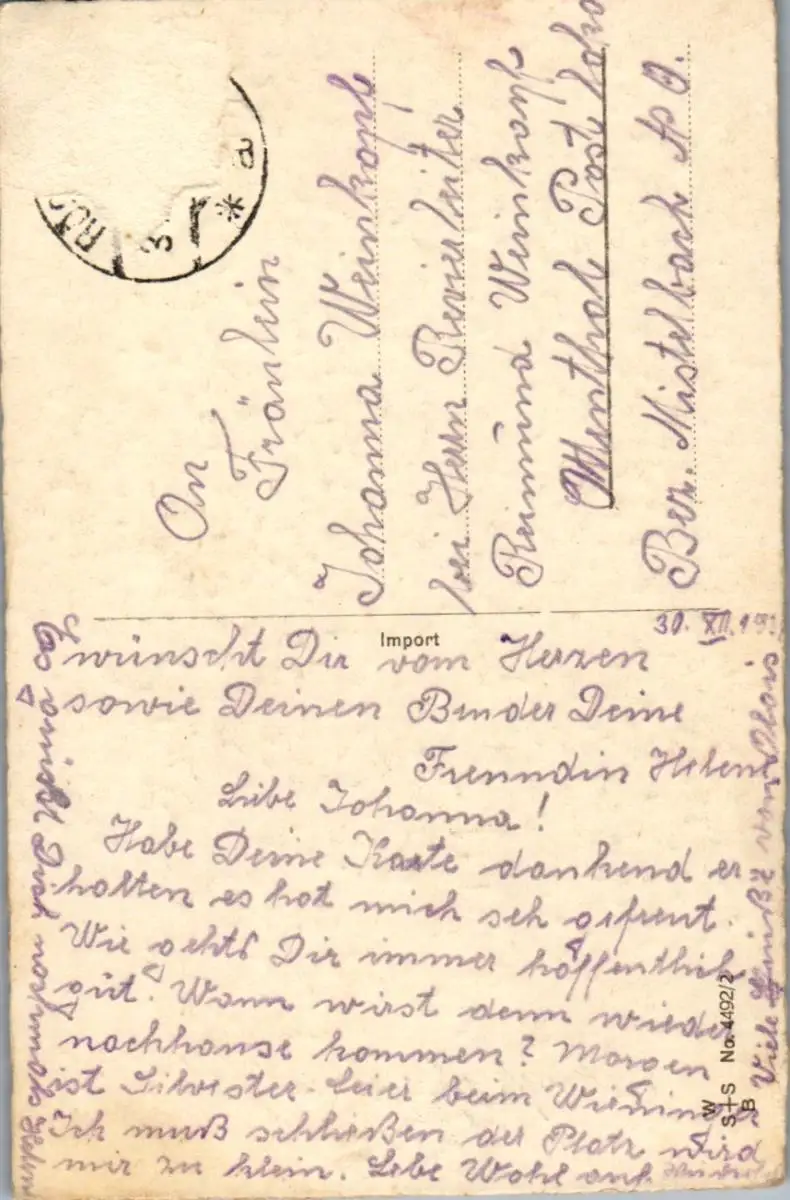 An
Fräulein
Johanna Weinkopf
bei Herrn Revierleiter
Reimund Weinkopf
Post
Bez. Mistelbach N Ö.
Import
30. XII. 19
wünscht Dir vom Herzen
sowie Deinen Bruder Deine
Freundin Helene
Liebe Johanna!
Habe Deine Karte dankend er
halten es hat mich seh gefreut.
Wie gehts Dir immer hoffentlich
gut. Wann wirst denn wieder
nachhause kommen? Morgen
ist Silvester-feier beim Wieninger
Ich muß schließen der Platz wird
mir zu klein. Lebe Wohl auf
Es grüßt Dich nochmals Helene
Viele Grüße von Alois
W
S+S No. 4492/2
B